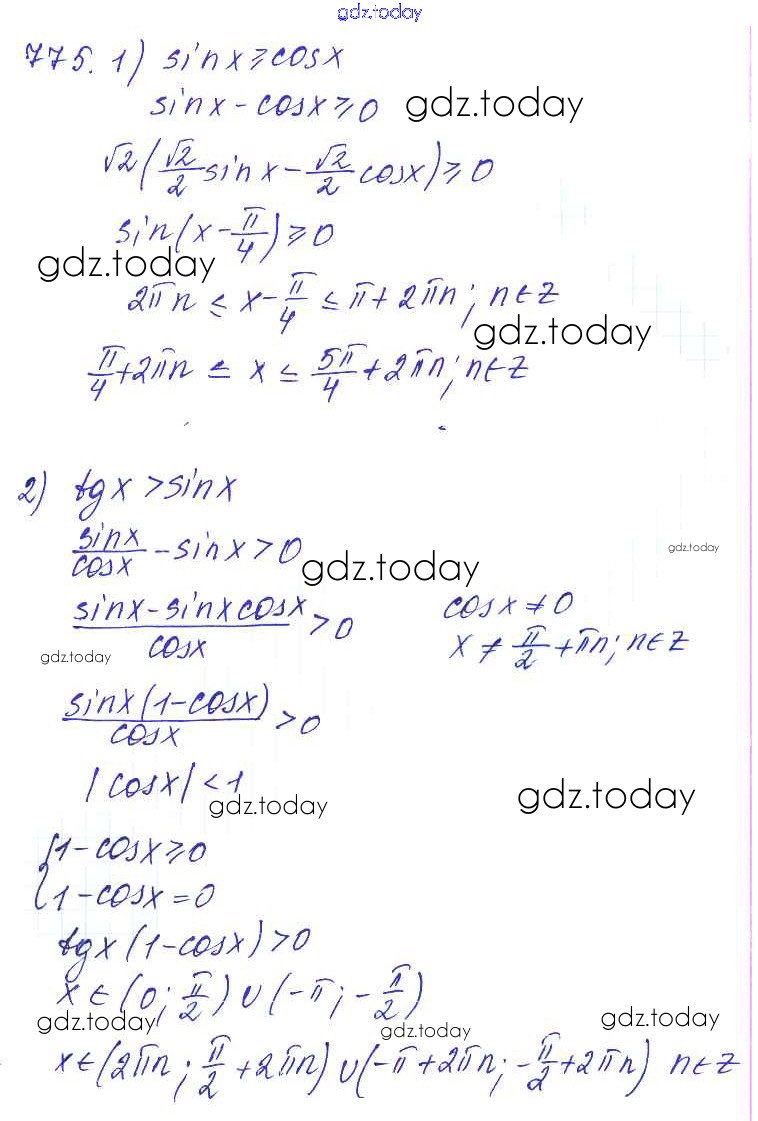 gdz.today
775. 1) sinx ≥ cosx
sinx - cosx ≥ 0 gdz.today
√2(√2/2 sinx - √2/2 cosx) ≥ 0
sin(x - π/4) ≥ 0
gdz.today
2πn ≤ x - π/4 ≤ π + 2πn; n∈Z
gdz.today
π/4 + 2πn ≤ x ≤ 5π/4 + 2πn; n∈Z
2) tgx > sinx
sinx/cosx - sinx > 0 gdz.today
gdz.today
(sinx - sinxcosx)/cosx > 0 cosx ≠ 0
gdz.today x ≠ π/2 + πn; n∈Z
sinx(1-cosx)/cosx > 0
|cosx| < 1
gdz.today gdz.today
{1 - cosx ≥ 0
1 - cosx = 0
tgx(1-cosx) > 0
x∈(0; π/2) ∪ (-π; -π/2)
gdz.today gdz.today gdz.today
x∈(2πn; π/2 + 2πn) ∪ (-π + 2πn; -π/2 + 2πn) n∈Z